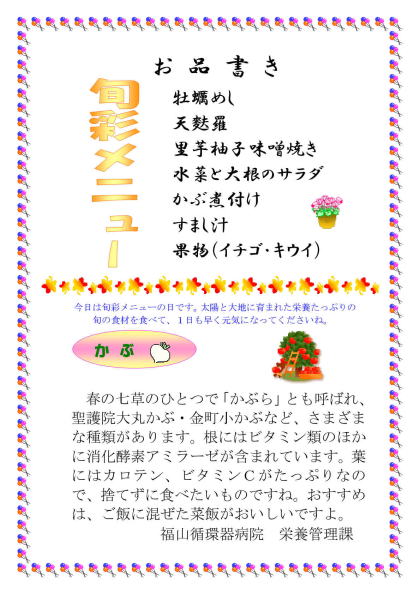 お品書き
旬彩メニュー
牡蠣めし
天麩羅
里芋柚子味噌焼き
水菜と大根のサラダ
かぶ煮付け
すまし汁
果物（イチゴ・キウイ）
今日は旬彩メニューの日です。太陽と大地に育まれた栄養たっぷりの
旬の食材を食べて、１日も早く元気になってくださいね。
かぶ
春の七草のひとつで「かぶら」とも呼ばれ、
聖護院大丸かぶ・金町小かぶなど、さまざま
な種類があります。根にはビタミン類のほか
に消化酵素アミラーゼが含まれています。葉
にはカロテン、ビタミンＣがたっぷりなの
で、捨てずに食べたいものですね。おすすめ
は、ご飯に混ぜた菜飯がおいしいですよ。
福山循環器病院　栄養管理課